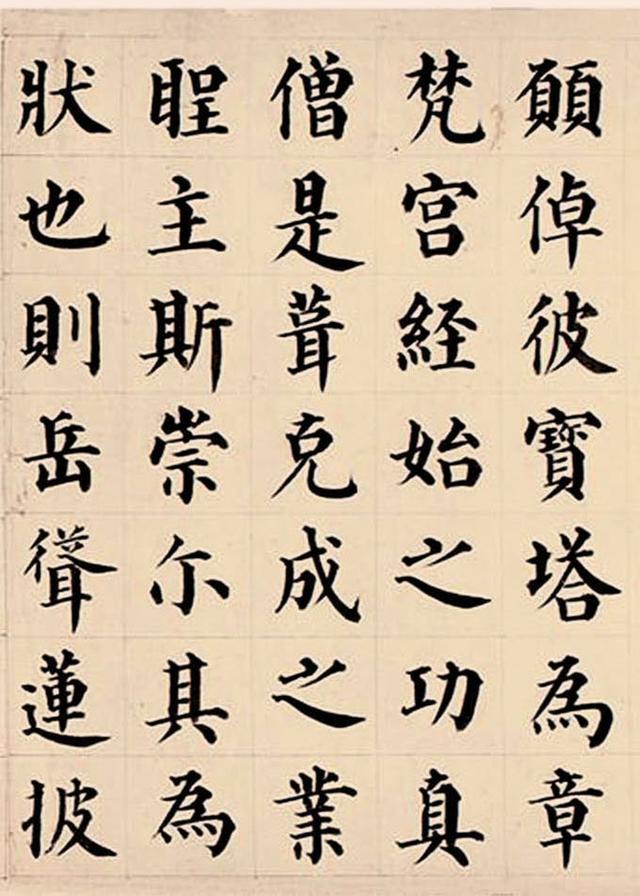 願倬彼寶塔為章
梵宮経始之功真
僧是葺克成之業
聖主斯崇尒其為
狀也則岳聳蓮披